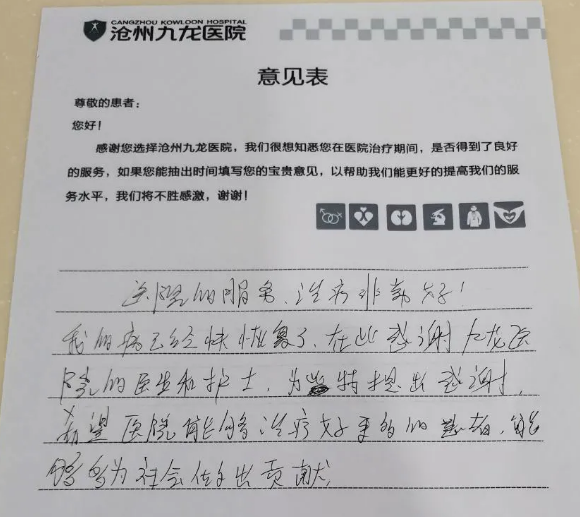 CANGZHOU KOWLOON HOSPITAL
沧州九龙医院
意见表
尊敬的患者：
您好！
感谢您选择沧州九龙医院，我们很想知悉您在医院治疗期间，是否得到了良好
的服务，如果您能抽出时间填写您的宝贵意见，以帮助我们能更好的提高我们的服
务水平，我们将不胜感激，谢谢！
医院的服务、治疗非常好！
我的病已经快恢复了，在此感谢九龙医
院的医生和护士，为此特提出感谢，
希望医院能够治疗好更多的患者，能
够多为社会作出贡献，